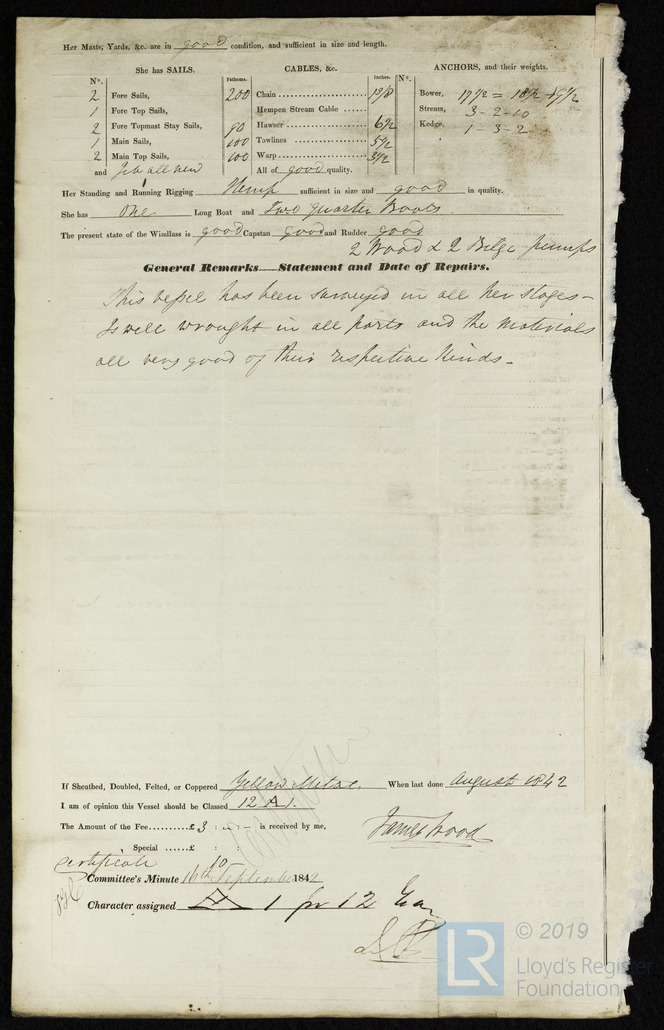 Her Masts, Yards, &c. are in good condition, and sufficient in size and length.
She has SAILS.
CABLES, &c.
ANCHORS, and their weights.
N°. Fathoms. Inches. N°.
2 Fore Sails, 200 Chain 1 3/8 Bower, 17 1/2 = 18 1/2 + 9 1/2
1 Fore Top Sails, Hempen Stream Cable Stream, 3-2-10
2 Fore Topmast Stay Sails, 90 Hawser 6 1/2 Kedge, 1-3-2
1 Main Sails, 100 Towlines 5 1/2
2 Main Top Sails, 100 Warp 3 1/2
and Jib all new All of good quality.
Her Standing and Running Rigging Hemp sufficient in size and good in quality.
She has One Long Boat and Two quarter Boats
The present state of the Windlass is good Capstan good and Rudder good
2 Wood & 2 Bilge pumps
General Remarks—Statement and Date of Repairs.
This vessel has been surveyed in all her stages-
Is well wrought in all parts and the materials
all very good of their respective Kinds-
If Sheathed, Doubled, Felted, or Coppered Yellow Metal When last done August 1842
I am of opinion this Vessel should be Classed 12 A 1.
The Amount of the Fee £ 3 : .. : - is received by me,
James Wood
Special £ : :
Certificate 10
Committee's Minute 16th September 1842
Character assigned A 1 for 12 Years
LR
© 2019
Lloyd's Register
Foundation